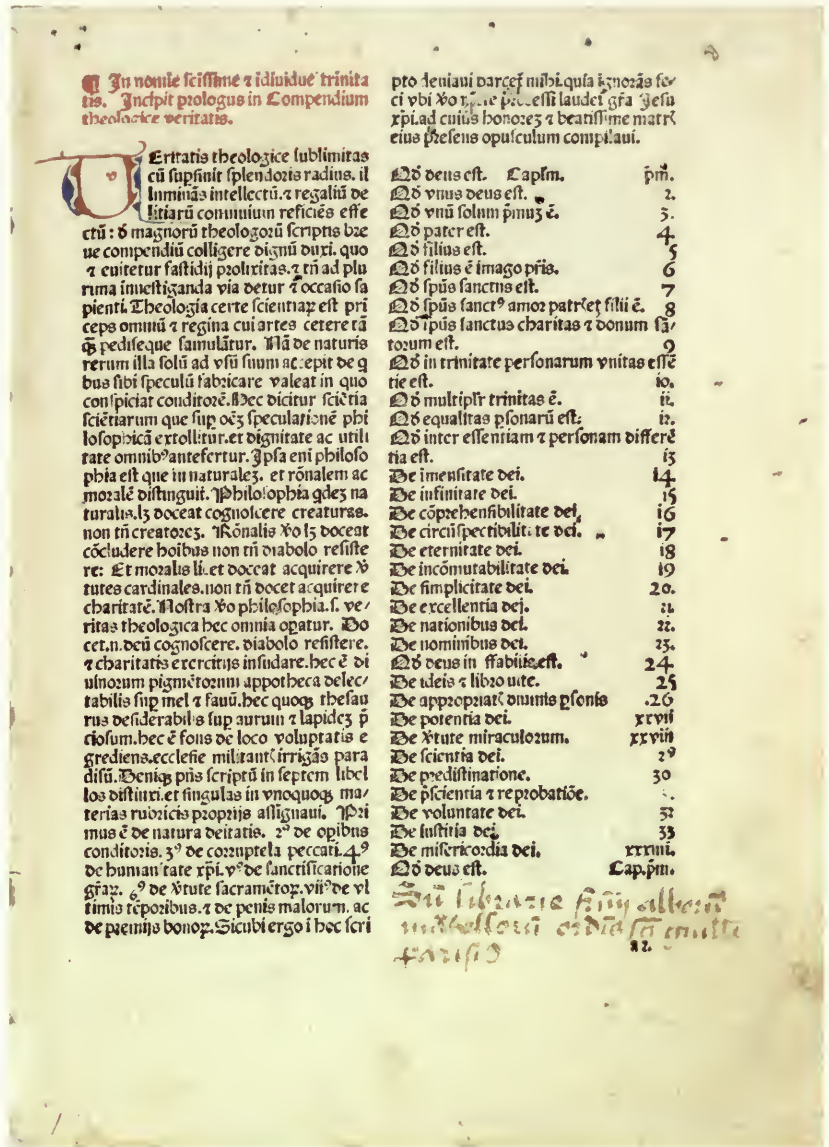 ¶ In nomīe scīssime ⁊ īdiuidue trinita
tis. Incipit prologus in Compendium
theologice veritatis.
VEritatis theologice sublimitas
cū supsinit splendoris radius. il
luminās intellectū.⁊ regaliū de
litiarū conuiuium reficiēs effe
ctū: ð magnorū theologorū scriptis bre
ue compendiū colligere dignū duxi. quo
⁊ euitetur fastidij prolixitas.⁊ tñ ad plu
rima inuestiganda via detur ⁊ occasio sa
pienti. Theologia certe scientiaꝝ est prī
ceps omniū ⁊ regina cui artes cetere tā
ꝙ̄ pedisseque famulātur. Nā de naturis
rerum illa solū ad vsū suum accepit de q
bus sibi speculū fabricare valeat in quo
conspiciat conditorē. Hec dicitur sciētia
sciētiarum que sup oēꝫ speculationē phi
losophicā extollitur.et dignitate ac utili
tate omnibꝰ antefertur. Ipsa eni philoso
phia est que in naturaleꝫ. et rōnalem ac
moralē distinguit̄. Philosophia qdeꝫ na
turalis.lꝫ doceat cognoscere creaturas.
non tñ creatoreꝫ. Rōnalis ꝟo lꝫ doceat
cōcludere hoibus non tñ diabolo resiste
re: Et moralis licet doceat acquirere ꝟ
tutes cardinales.non tñ docet acquirere
charitatē. Nostra ꝟo philosophia.s. ve⸗
ritas theologica hec omnia opatur. Do
cet.n.deū cognoscere. diabolo resistere.
⁊ charitatis exercitijs insudare.hec ē di
uinorum pigmētorum appotheca delec⸗
tabilis sup mel ⁊ fauū.hec quoqꝫ thesau
rus desiderabilis sup aurum ⁊ lapideꝫ p̄
ciosum.hec ē fons de loco voluptatis e
grediens.ecclesie militantꝭ irrigās para
disū. Deniqꝫ pn̄s scriptū in septem libel
los distinxi.et singulas in vnoquoqꝫ ma⸗
terias rubricis proprijs assignaui. Pri
mus ē de natura deitatis. 2ꝰ de opibus
conditoris. 3ꝰ de corruptela peccati.4ꝰ
de humanitate xp̄i. vꝰ de sanctificatione
gr̄aꝝ. 6ꝰ de ꝟtute sacramētoꝝ. viiꝰ de vl
timis tēporibus.⁊ de penis malorum. ac
de premijs bonoꝝ. Sicubi ergo ī hoc scri
pto deuiaui parceꝭ mihi.quia ignorās fe⸗
ci vbi ꝟo processi laudet̄ gr̄a Jesu
xp̄i.ad cuius honoreꝫ ⁊ beatissime matrꝭ
eius presens opusculum compilaui.
Qð deus est. Capl̄m. p̄m.
Qð vnus deus est. 2.
Qð vnū solum p̄muꝫ ē. 3.
Qð pater est. 4
Qð filius est. 5
Qð filius ē imago pr̄is. 6
Qð sp̄us sanctus est. 7
Qð sp̄us sanctꝰ amor patrꝭ et filii ē. 8
Qð sp̄us sanctus charitas ⁊ donum sā⸗
torum est. 9
Qð in trinitate personarum vnitas essē
tie est. io.
Qð multiplr̄ trinitas ē. ii.
Qð equalitas psonarū est. i2.
Qð inter essentiam ⁊ personam differē
tia est. i3
De īmensitate dei. i4.
De infinitate dei. i5
De cōprehensibilitate dei. i6
De circūspectibilitate dei. i7
De eternitate dei. i8
De incōmutabilitate dei. i9
De simplicitate dei. 20.
De excellentia dei. 2i.
De nationibus dei. 22.
De nominibus dei. 23.
Qð deus in effabilis est. 24
De ideis ⁊ libro uite. 25
De appropriatꝭ diuinis psonis .26
De potentia dei. xxvii
De ꝟtute miraculorum. xxviii
De scientia dei. 2ꝰ
De predistinatione. 30
De p̄scientia ⁊ reprobatiōe.
De voluntate dei. 32
De iustitia dei. 33
De misericordia dei. xxxiiii.
Qð deus est. Cap.p̄m.
Sū librarie
parisiꝰ
a2.